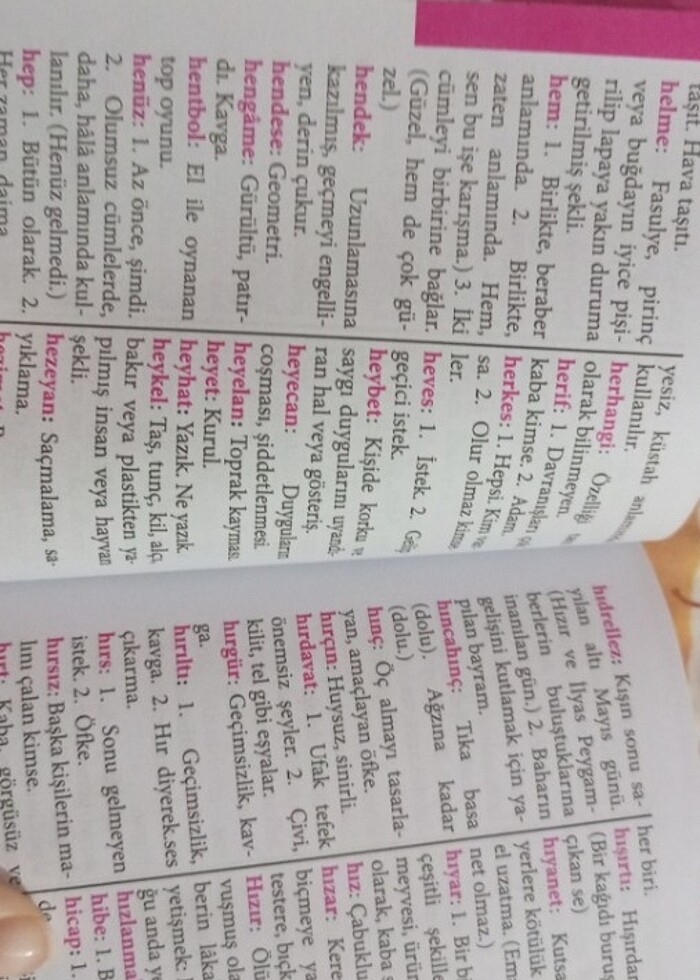 taşıt. Hava taşıtı.
helme: Fasulye, pirinç
veya buğdayın iyice pişi-
rilip lapaya yakın duruma
getirilmiş şekli.
hem: 1. Birlikte, beraber
anlamında. 2. Birlikte,
zaten anlamında. Hem,
sen bu işe karışma.) 3. İki
cümleyi birbirine bağlar.
(Güzel, hem de çok gü-
zel.)
hendek: Uzunlamasına
kazılmış, geçmeyi engelli-
yen, derin çukur.
hendese: Geometri.
hengâme: Gürültü, patır-
dı. Kavga.
hentbol: El ile oynanan
top oyunu.
henüz: 1. Az önce, şimdi.
2. Olumsuz cümlelerde,
daha, hâlâ anlamında kul-
lanılır. (Henüz gelmedi.)
hep: 1. Bütün olarak. 2.
Her zaman, daima
yesiz, küstah
kullanılır.
herhangi: Özelliği
olarak bilinmeyen.
herif: 1. Davranışları
kaba kimse. 2. Adam.
herkes: 1. Hepsi. Kim
sa. 2. Olur olmaz kimse
ler.
heves: 1. İstek. 2.
geçici istek.
heybet: Kişide korku
saygı duygularını uyandı-
ran hal veya gösteriş.
heyecan: Duyguların
coşması, şiddetlenmesi.
heyelan: Toprak kayması.
heyet: Kurul.
heyhat: Yazık. Ne yazık.
heykel: Taş, tunç, kil, alçı
bakır veya plastikten ya-
pılmış insan veya hayvan
şekli.
hezeyan: Saçmalama, sa-
yıklama.
hıdrellez: Kışın sonu sa-
yılan altı Mayıs günü.
(Hızır ve İlyas Peygam-
berlerin buluştuklarına
inanılan gün.) 2. Baharın
gelişini kutlamak için ya-
pılan bayram.
hıncahınç: Tıka basa
(dolu). Ağzına kadar
(dolu.)
hınç: Öç almayı tasarla-
yan, amaçlayan öfke.
hırçın: Huysuz, sinirli.
hırdavat: 1. Ufak tefek
önemsiz şeyler. 2. Çivi,
kilit, tel gibi eşyalar.
hırgür: Geçimsizlik, kav-
ga.
hırıltı: 1. Geçimsizlik,
kavga. 2. Hır diyerek.ses
çıkarma.
hırs: 1. Sonu gelmeyen
istek. 2. Öfke.
hırsız: Başka kişilerin ma-
lını çalan kimse.
hırt: Kaba, görgüsüz ve
her biri.
hışırtı: Hışırda
(Bir kağıdı buru
çıkan se)
hıyanet: Kutsa
yerlere kötülük
el uzatma. (Em
net olmaz.)
hıyar: 1. Bir bi
çeşitli şekille
meyvesi, ürün
olarak, kaba s
hız: Çabuklu
hızar: Kere
biçmeye ya
testere, bıçk
Hızır: Ölü
vuşmuş ola
berin lâka
yetişmek:
ğu anda y
hızlanma
hibe: 1. B
hicap: 1.
de